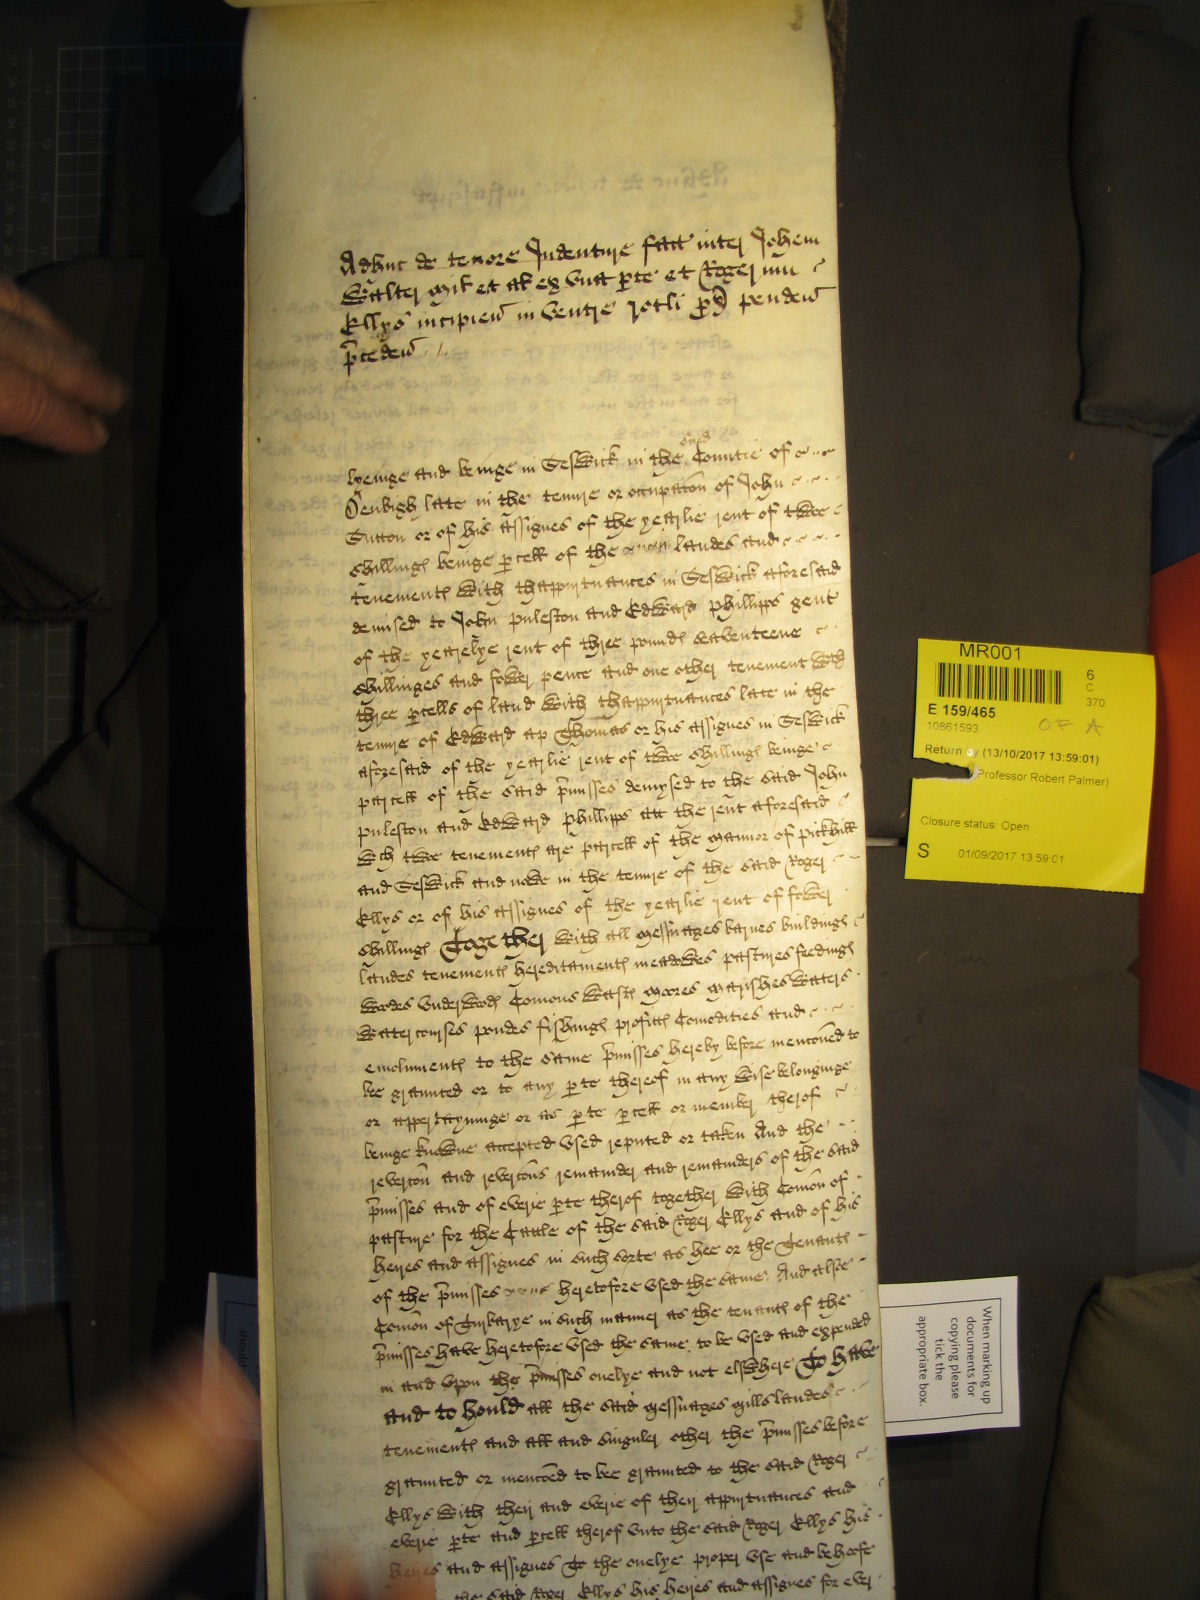 Adhuc de tenore Indenture fact inter Johem
Walter mil et al ex una pte et Rogerum
Ellys incipien in ventre rotli pd penden
pceden
lyenge and beinge in Seswick in the said Countie of
Denbigh late in the tenure or occupaton of John
Sutton or of his assignes of the yearlie rent of twoe
shilling beinge pcell of the landes and
tenement with thappurtnances in Seswick aforesaid
demised to John Puleston and Edward Phillipps gent
of the yearelye rent of three pound seaventeene
shillinges and fower pence and one other tenement with
three pcells of land with thappurtnances late in the
tenure of Edward ap Thomas or his assignes in Seswick
aforesaid of the yearlie rent of twoe shilling beinge
parcell of the said pmisses demysed to the said John
Puleston and Edward Phillipps att the rent aforesaid
wch twoe tenement are parcell of the mannor of Pickhill
and Seswick and nowe in the tenure of the said Roger
Ellys or of his assignes of the yearlie rent of fower
shilling Together with all messuages barnes building
landes tenement hereditament meadowes pastures feeding
woodes underwood Comons wast moores marishes waters
watercourses pondes fishing profitt Comodities and
emolument to the same pmisses hereby before mentoned to
be graunted or to any pte thereof in any wise belonginge
or appertayninge or as pte pcell or member therof
beinge knowne accepted used reputed or taken And the
revercon and revercons remainder and remainders of the said
pmisses and of everie pte therof together with Comon of
pasture for the Cattle of the said Roger Ellys and of his
heyres and assignes in such sorte as hee or the Tenant
of the pmisses have heretofore used the same And alsoe
Comon of Turbarye in such manner as the tenant of the
pmisses have heretofore used the same to be used and expended
in and upon the pmisses onelye and not elswhere To have
and to hould all the said messuages mills landes
tenement and all and singuler other the pmisses before
graunted or mentoned to bee graunted to the said Roger
Ellys with their and everie of their appurtnances and
everie pte and pcell therof unto the said Roger Ellys his
heyres and assignes To the onelye proper use and behoofe
the said Roger Ellys his heyres and assignes for ever
MR001
6
C
370
E 159/465
10861593
OF A
Return by (13/10/2017 13:59:01)
Professor Robert Palmer)
Closure status: Open
S 01/09/2017 13:59:01
When marking up
documents for
copying please
tick the
appropriate box.